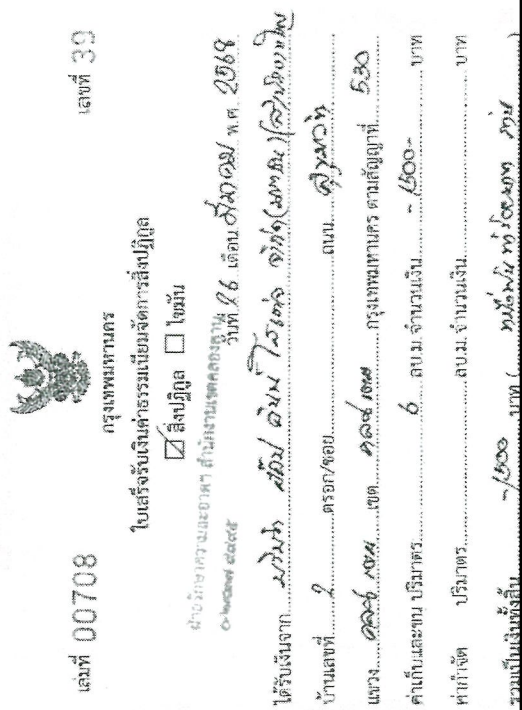 เล่มที่ 00708 เลขที่ 39
กรุงเทพมหานคร
ใบเสร็จรับเงินค่าธรรมเนียมจัดการสิ่งปฏิกูล
สิ่งปฏิกูล ไขมัน
ฝ่ายรักษาความสะอาดฯ สำนักงานเขตคลองเตย
วันที่ 26 เดือน มีนาคม พ.ศ. 2568
ได้รับเงินจาก บริษัท จำกัด (มหาชน)
บ้านเลขที่ 2 ตรอก/ซอย ถนน สุขุมวิท
แขวง คลองเตย เขต คลองเตย กรุงเทพมหานคร ตามสัญญาที่ 530
ค่าเก็บและขน ปริมาตร 6 ลบ.ม. จำนวนเงิน -1500- บาท
ค่ากำจัด ปริมาตร ลบ.ม. จำนวนเงิน บาท
รวมเป็นเงินทั้งสิ้น -1500 บาท ( หนึ่งพันห้าร้อยบาท